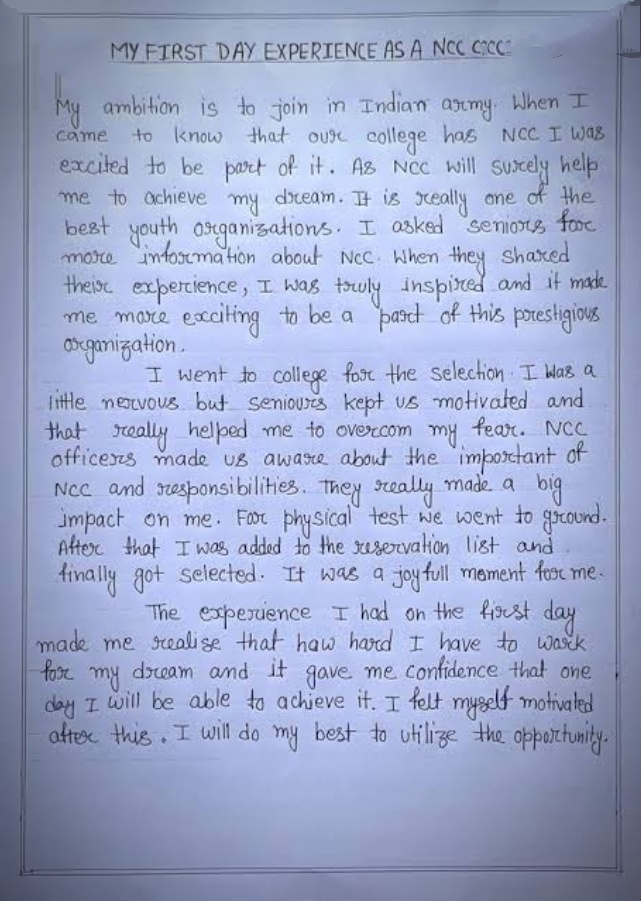 MY FIRST DAY EXPERIENCE AS A NCC
My ambition is to join in Indian army. When I
came to know that our college has NCC I was
excited to be part of it. As NCC will surely help
me to achieve my dream. It is really one of the
best youth organizations. I asked seniors for
more information about NCC. When they shared
their experience, I was truly inspired and it made
me more exciting to be a part of this prestigious
organization.
I went to college for the selection. I was a
little nervous but seniours kept us motivated and
that really helped me to overcom my fear. NCC
officers made us aware about the important of
NCC and responsibilities. They really made a big
impact on me. For physical test we went to ground.
After that I was added to the reservation list and
finally got selected. It was a joyfull moment for me.
The experience I had on the first day
made me realise that haw hard I have to work
for my dream and it gave me confidence that one
day I will be able to achieve it. I felt myself motivated
after this. I will do my best to utilize the opportunity.